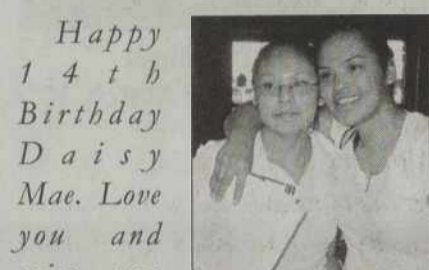 Happy
14th
Birthday
Daisy
Mae. Love
you and